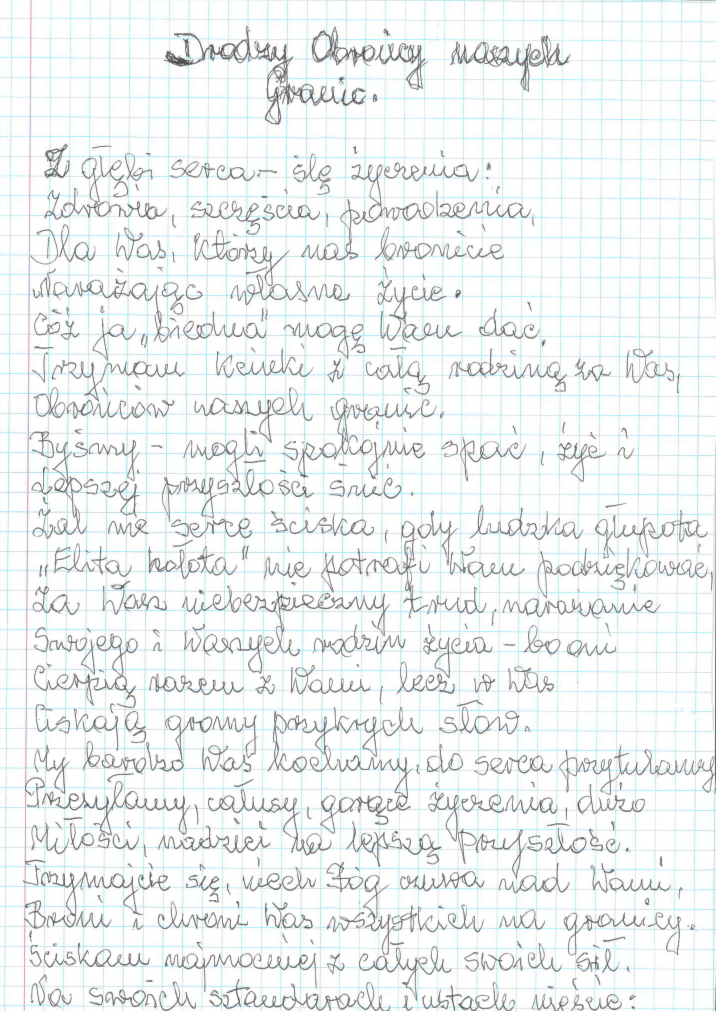 Drodzy Obrońcy naszych
Granic.
Z głębi serca – ślę życzenia:
Zdrowia, szczęścia, powodzenia,
Dla Was, którzy nas bronicie
Narażając własne życie.
Cóż ja „biedna" mogę Wam dać,
Trzymam kciuki z całą rodziną za Was,
Obrońców naszych granic.
Byśmy – mogli spokojnie spać, żyć i
Lepszej przyszłości śnić.
Żal me serce ściska, gdy ludzka głupota
„Elita hołota" nie potrafi Wam podziękować,
Za Wasz niebezpieczny trud, narażanie
Swojego i Waszych rodzin życia – bo oni
Cierpią razem z Wami, lecz w Was
Ciskają gromy przykrych słów.
My bardzo Was kochamy, do serca przytulamy
Przesyłamy, całusy, gorące życzenia, dużo
Miłości, nadziei na lepszą przyszłość.
Trzymajcie się, niech Bóg czuwa nad Wami,
Broni i chroni Was wszystkich na granicy.
Ściskam najmocniej z całych swoich sił.
Na swoich sztandarach i ustach nieście: